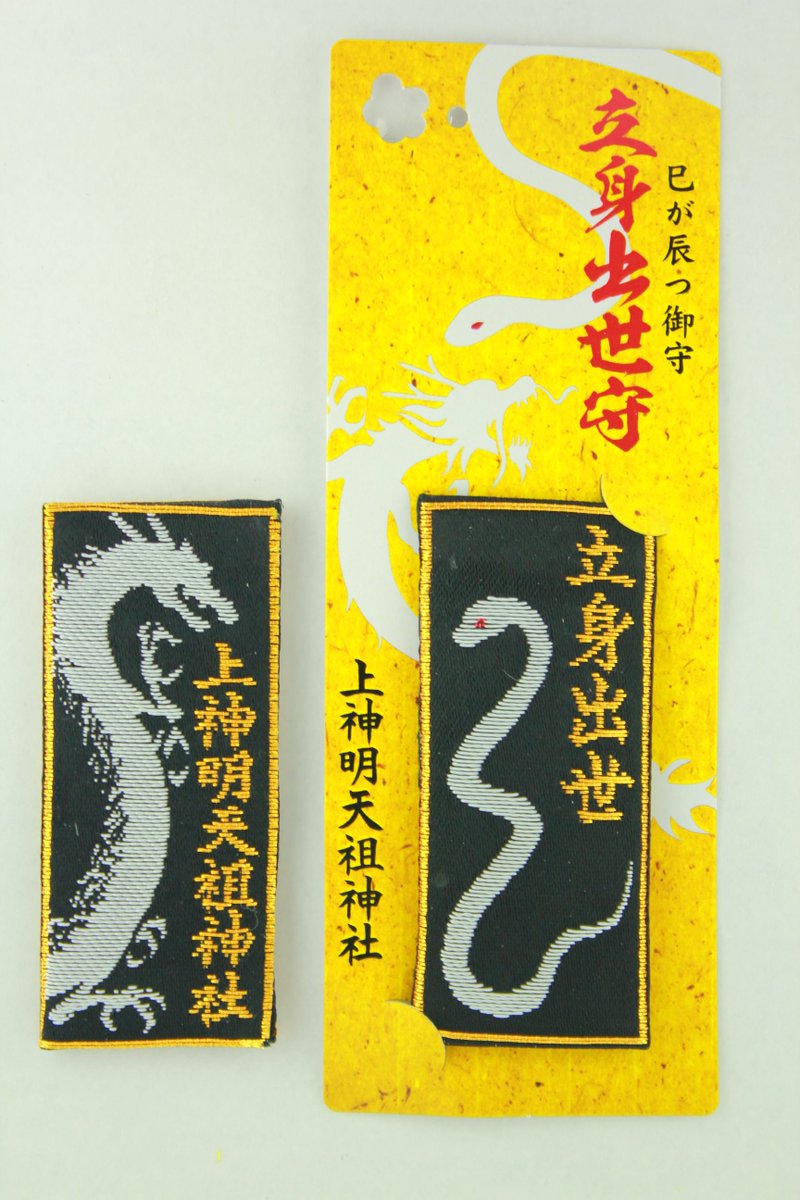 巳が辰つ御守
立身出世守
立身出世
上神明天祖神社
上神明天祖神社